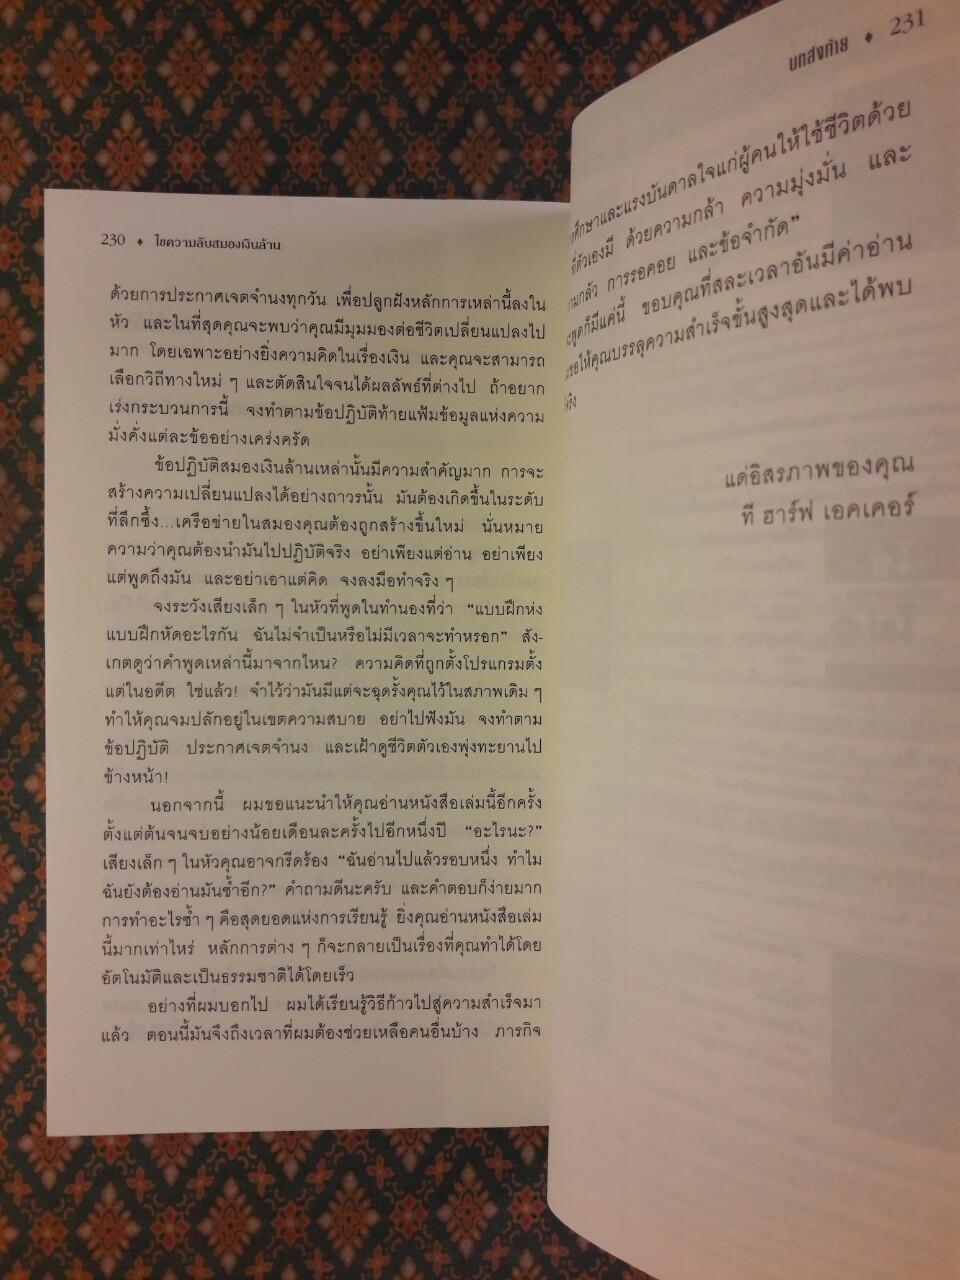 230 ♦ ไขความลับสมองเงินล้าน
ด้วยการประกาศเจตจำนงทุกวัน เพื่อปลูกฝังหลักการเหล่านี้ลงใน
หัว และในที่สุดคุณจะพบว่าคุณมีมุมมองต่อชีวิตเปลี่ยนแปลงไป
มาก โดยเฉพาะอย่างยิ่งความคิดในเรื่องเงิน และคุณจะสามารถ
เลือกวิถีทางใหม่ ๆ และตัดสินใจจนได้ผลลัพธ์ที่ต่างไป ถ้าอยาก
เร่งกระบวนการนี้ จงทำตามข้อปฏิบัติท้ายแฟ้มข้อมูลแห่งความ
มั่งคั่งแต่ละข้ออย่างเคร่งครัด
ข้อปฏิบัติสมองเงินล้านเหล่านั้นมีความสำคัญมาก การจะ
สร้างความเปลี่ยนแปลงได้อย่างถาวรนั้น มันต้องเกิดขึ้นในระดับ
ที่ลึกซึ้ง...เครือข่ายในสมองคุณต้องถูกสร้างขึ้นใหม่ นั่นหมาย
ความว่าคุณต้องนำมันไปปฏิบัติจริง อย่าเพียงแต่อ่าน อย่าเพียง
แต่พูดถึงมัน และอย่าเอาแต่คิด จงลงมือทำจริง ๆ
จงระวังเสียงเล็ก ๆ ในหัวที่พูดในทำนองที่ว่า “แบบฝึกห่ง
แบบฝึกหัดอะไรกัน ฉันไม่จำเป็นหรือไม่มีเวลาจะทำหรอก” สัง-
เกตดูว่าคำพูดเหล่านี้มาจากไหน? ความคิดที่ถูกตั้งโปรแกรมตั้ง
แต่ในอดีต ใช่แล้ว! จำไว้ว่ามันมีแต่จะฉุดรั้งคุณไว้ในสภาพเดิม ๆ
ทำให้คุณจมปลักอยู่ในเขตความสบาย อย่าไปฟังมัน จงทำตาม
ข้อปฏิบัติ ประกาศเจตจำนง และเฝ้าดูชีวิตตัวเองพุ่งทะยานไป
ข้างหน้า!
นอกจากนี้ ผมขอแนะนำให้คุณอ่านหนังสือเล่มนี้อีกครั้ง
ตั้งแต่ต้นจนจบอย่างน้อยเดือนละครั้งไปอีกหนึ่งปี “อะไรนะ?”
เสียงเล็ก ๆ ในหัวคุณอาจกรีดร้อง “ฉันอ่านไปแล้วรอบหนึ่ง ทำไม
ฉันยังต้องอ่านมันซ้ำอีก?” คำถามดีนะครับ และคำตอบก็ง่ายมาก
การทำอะไรซ้ำ ๆ คือสุดยอดแห่งการเรียนรู้ ยิ่งคุณอ่านหนังสือเล่ม
นี้มากเท่าไหร่ หลักการต่าง ๆ ก็จะกลายเป็นเรื่องที่คุณทำได้โดย
อัตโนมัติและเป็นธรรมชาติได้โดยเร็ว
อย่างที่ผมบอกไป ผมได้เรียนรู้วิธีก้าวไปสู่ความสำเร็จมา
แล้ว ตอนนี้มันจึงถึงเวลาที่ผมต้องช่วยเหลือคนอื่นบ้าง ภารกิจ
บทส่งท้าย ♦ 231
ศึกษาและแรงบันดาลใจแก่ผู้คนให้ใช้ชีวิตด้วย
ที่ตัวเองมี ด้วยความกล้า ความมุ่งมั่น และ
กลัว การรอคอย และข้อจำกัด”
พูดก็มีแค่นี้ ขอบคุณที่สละเวลาอันมีค่าอ่าน
ขอให้คุณบรรลุความสำเร็จขั้นสูงสุดและได้พบ
จริง
แด่อิสรภาพของคุณ
ที ฮาร์ฟ เอคเคอร์